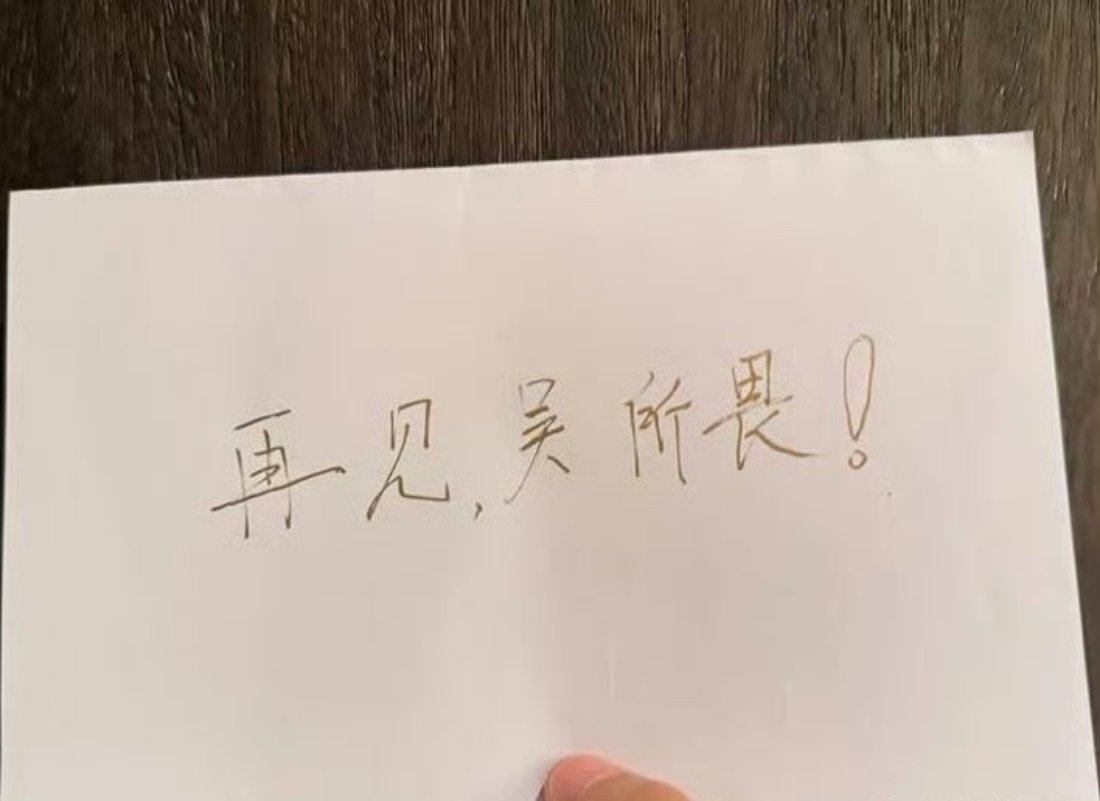 再见,吴所畏!